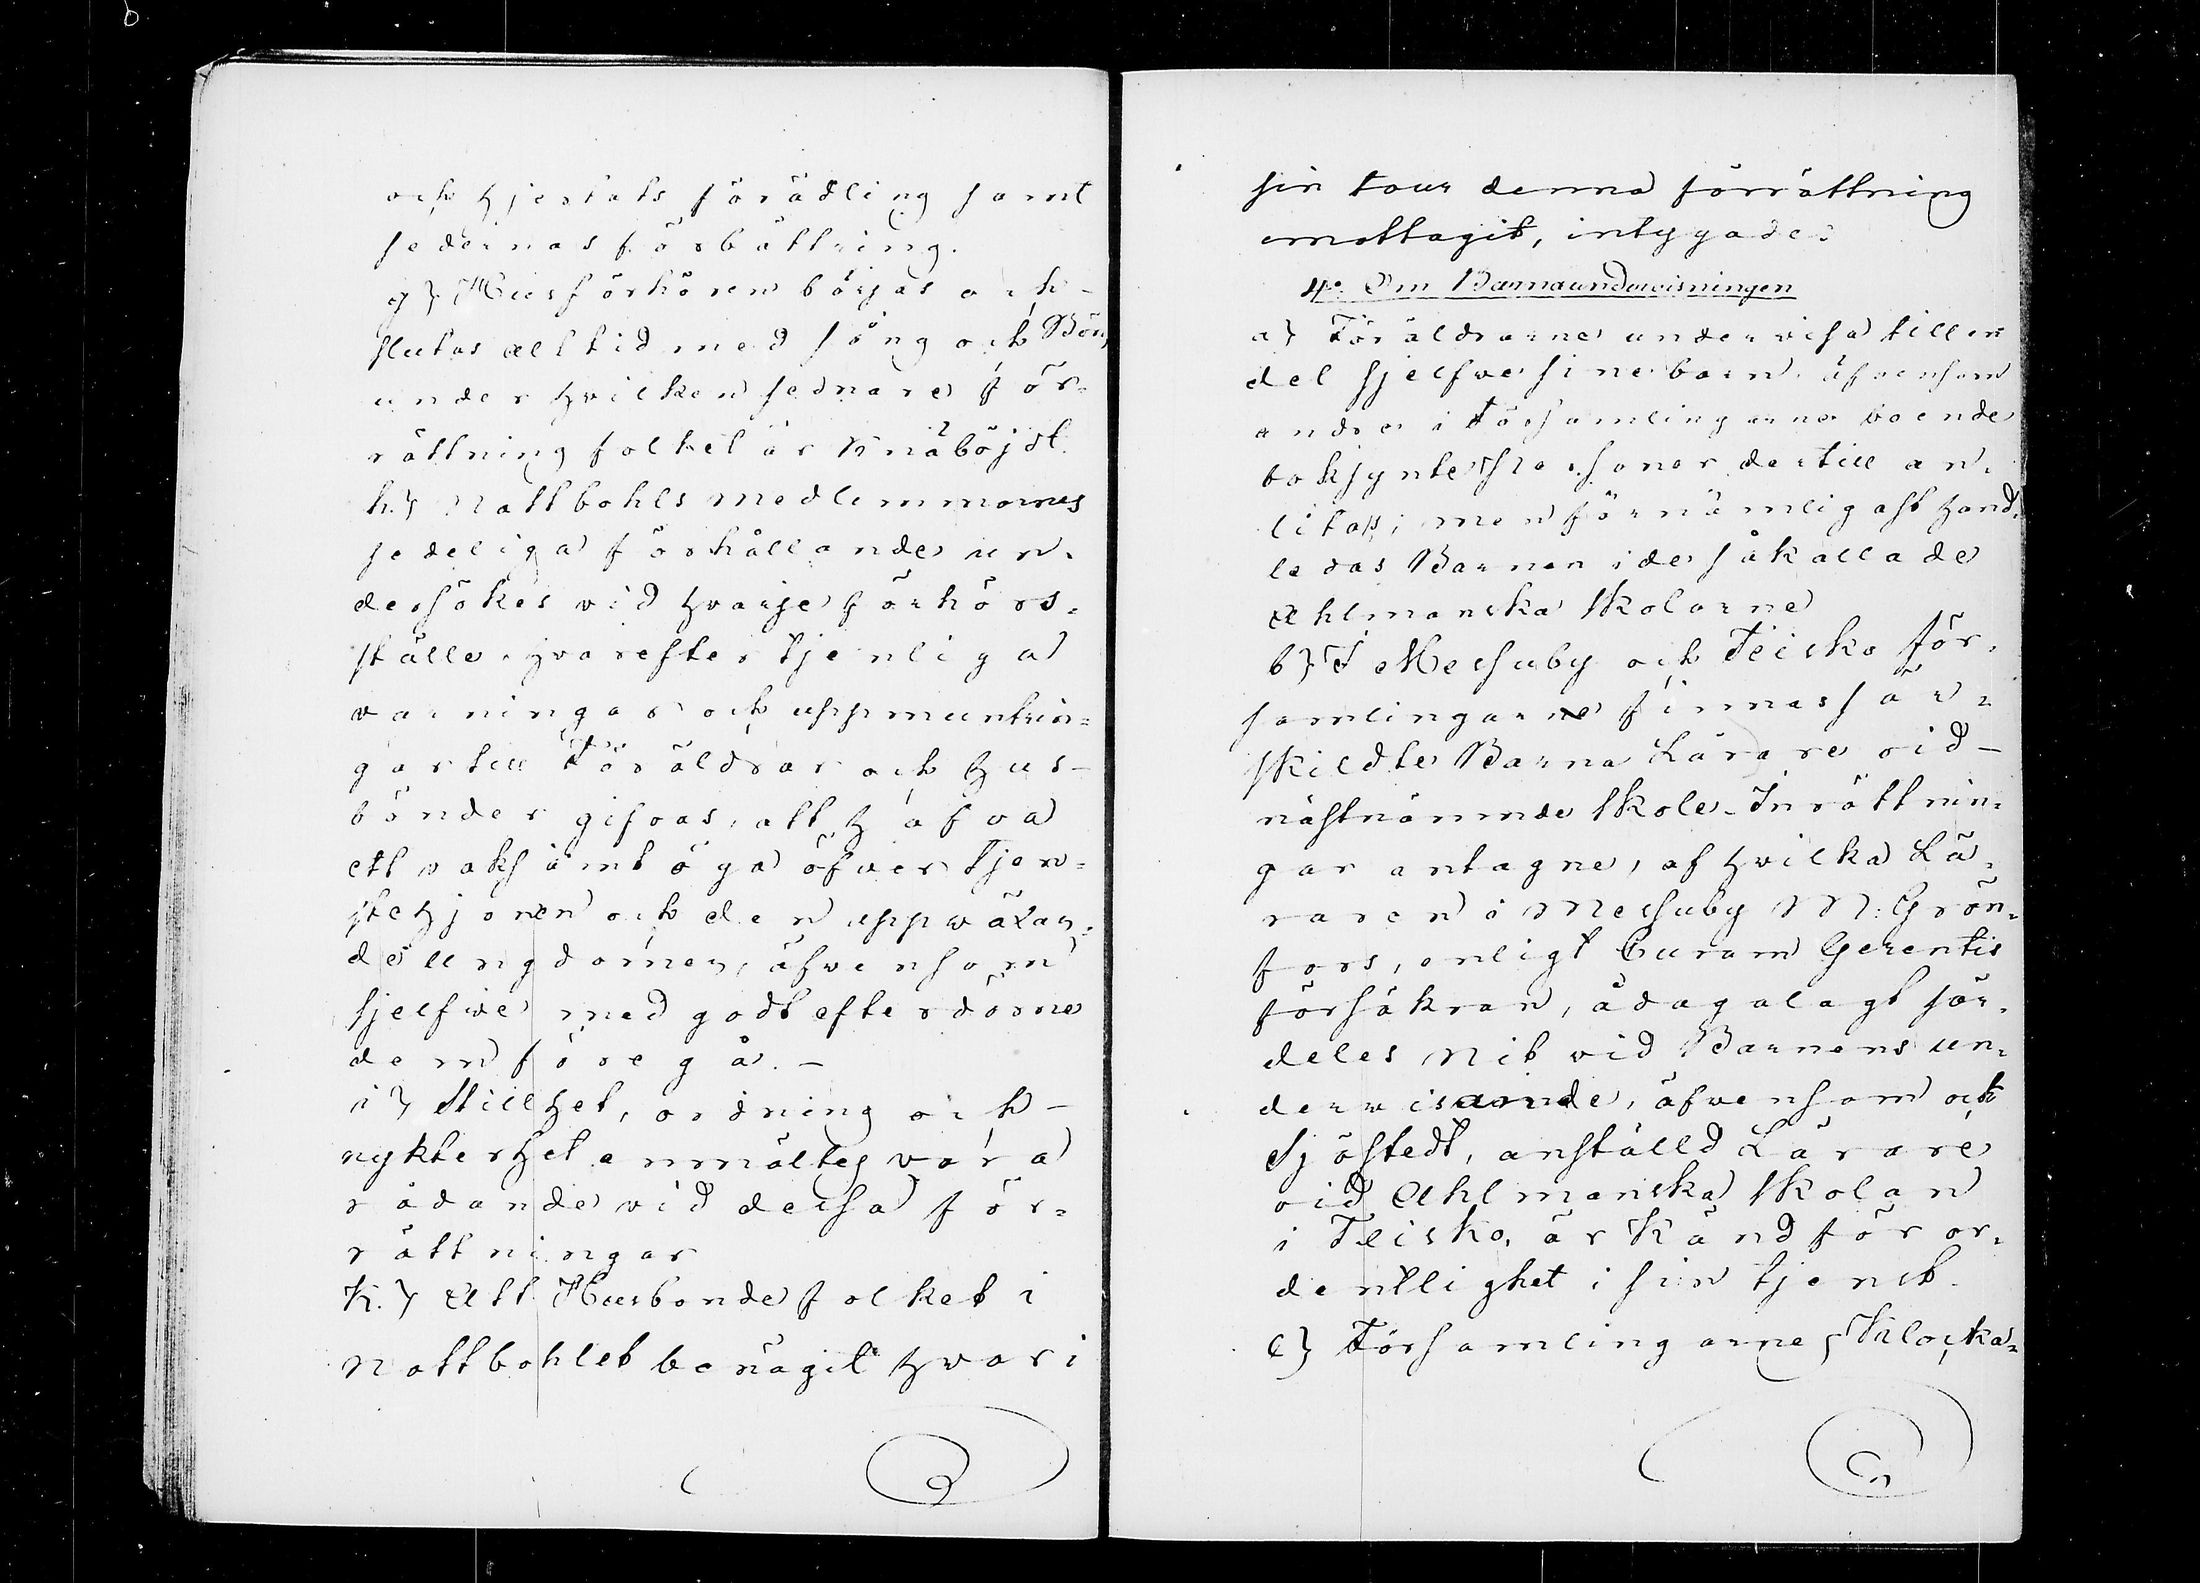 och hjertats förädling samt
sedernas förbättring.
g) Husförhören börjas och
slutas alltid med sång och Bön,
under hvilken sednare för-
rättning folket är knäböjdt.
h.) Nattbohls medlemmarnes
sedeliga förhållande un-
dersökes vid hvarje förhörs-
ställe, hvarefter tjenliga
varningar och uppmuntrin-
gar till Föräldrar och hus-
bönder gifvas, att hafva
ett vaksamt öga öfver tjen-
stehjonen och den uppväxan-
de ungdomen, äfvensom
sjelfve med godt efterdöme
dem föregå. -
i) Stillhet, ordning och
nykterhet anmältes vara
rådande vid dessa för-
rättningar
k.) Att Husbondefolket i
Nattbohlet benäget hvar i
sin tour denna förrättning
emottagit, intygades
4:o Om Barnaundervisningen
a) Föräldrarne undervisa till en
del sjelfve sine barn, äfvensom
andra i Församlingarne boende
boksynte Personer dertill an-
litas; men förnämligast hand-
ledas Barnen i de så kallade
Ahlmanska Skolarne
b) I Messuby och Teisko för-
samlingarne finnas sär-
skildte Barna Lärare vid
nästnämnde Skole-Inrättnin-
gar antagne, af hvilka Lä-
raren i Messuby M: Grön-
fors, enligt Curam Gerentis
försäkran, ådagalagt sär-
deles nit vid Barnens un-
dervisande, äfvensom ock
Sjöstedt, anställd Lärare
vid Ahlmanska Skolan
i Teisko, är känd för or-
dentlighet i sin tjenst.
c) Församlingarnes Klocka-